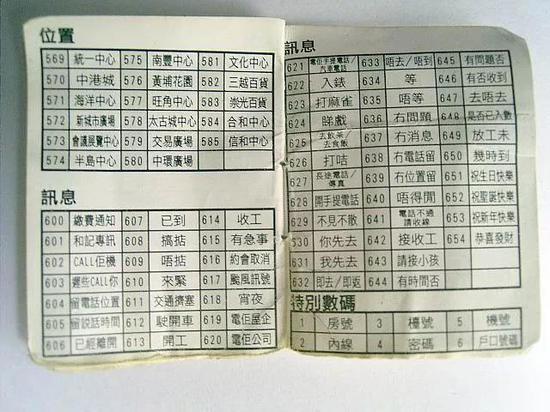 位置
569 統一中心 575 南豐中心 581 文化中心
570 中港城 576 黃埔花園 582 三越百貨
571 海洋中心 577 旺角中心 583 崇光百貨
572 新城市廣場 578 太古城中心 584 合和中心
573 會議展覽中心 579 交易廣場 585 信和中心
574 半島中心 580 中環廣場
訊息
600 繳費通知 607 已到 614 收工
601 和記專訊 608 搞掂 615 有急事
602 CALL佢機 609 唔掂 616 約會取消
603 遲些CALL你 610 來緊 617 颱風訊號
604 留電話位置 611 交通擠塞 618 宵夜
605 留説話時間 612 駛開車 619 電佢屋企
606 已經離開 613 開工 620 電佢公司
訊息
621 電佢手提電話/汽車電話 633 唔去/唔到 645 有問題否
622 入錶 634 等 646 有否收到
623 打麻雀 635 唔等 647 去唔去
624 睇戲 636 冇問題 648 是否已入數
625 去飲茶/去食飯 637 冇消息 649 放工未
626 打咭 638 冇電話留 650 幾時到
627 長途電話/傳真 639 冇位置留 651 祝生日快樂
628 開手提電話 640 唔得閒 652 祝聖誕快樂
629 不見不散 641 電話不通請收線 653 祝新年快樂
630 你先去 642 接收工 654 恭喜發財
631 我先去 643 請接小孩
632 即去/即返 644 有時間否
特別數碼
1 房號 3 檯號 5 機號
2 內線 4 密碼 6 戶口號碼